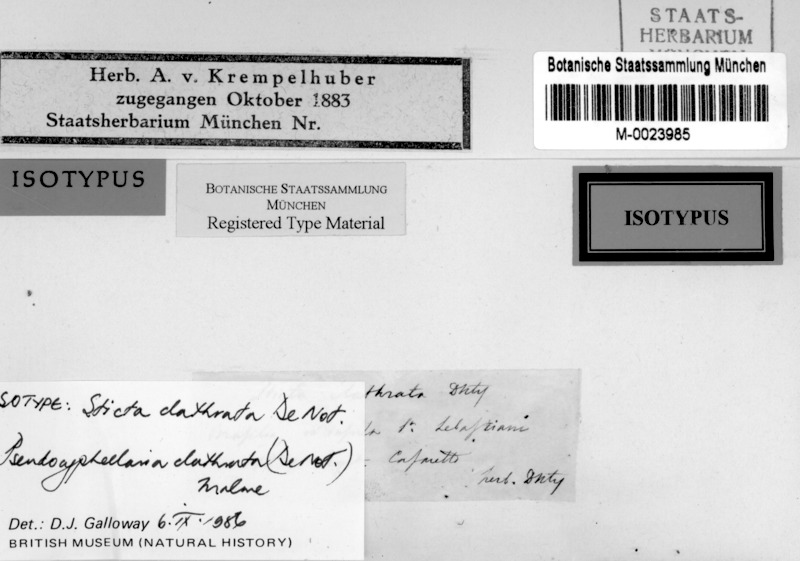 STAATS-
HERBARIUM
MÜNCHEN
Herb. A. v. Krempelhuber
zugegangen Oktober 1883
Staatsherbarium München Nr.
Botanische Staatssammlung München
M-0023985
ISOTYPUS
BOTANISCHE STAATSSAMMLUNG
MÜNCHEN
Registered Type Material
ISOTYPUS
ISOTYPE: Sticta clathrata De Not.
Pseudocyphellaria clathrata (De Not.)
Malme
Det.: D.J. Galloway 6.IX.1986
BRITISH MUSEUM (NATURAL HISTORY)
thrata DNty
Sebastiani
Cafaretti
herb. DNty